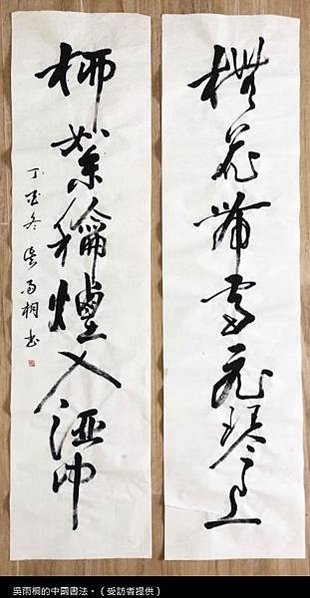 楳花帶雪飛琴上
柳葉龢煙入酒中
丁酉冬 吳雨桐书
吳雨桐的中國書法。(受訪者提供)